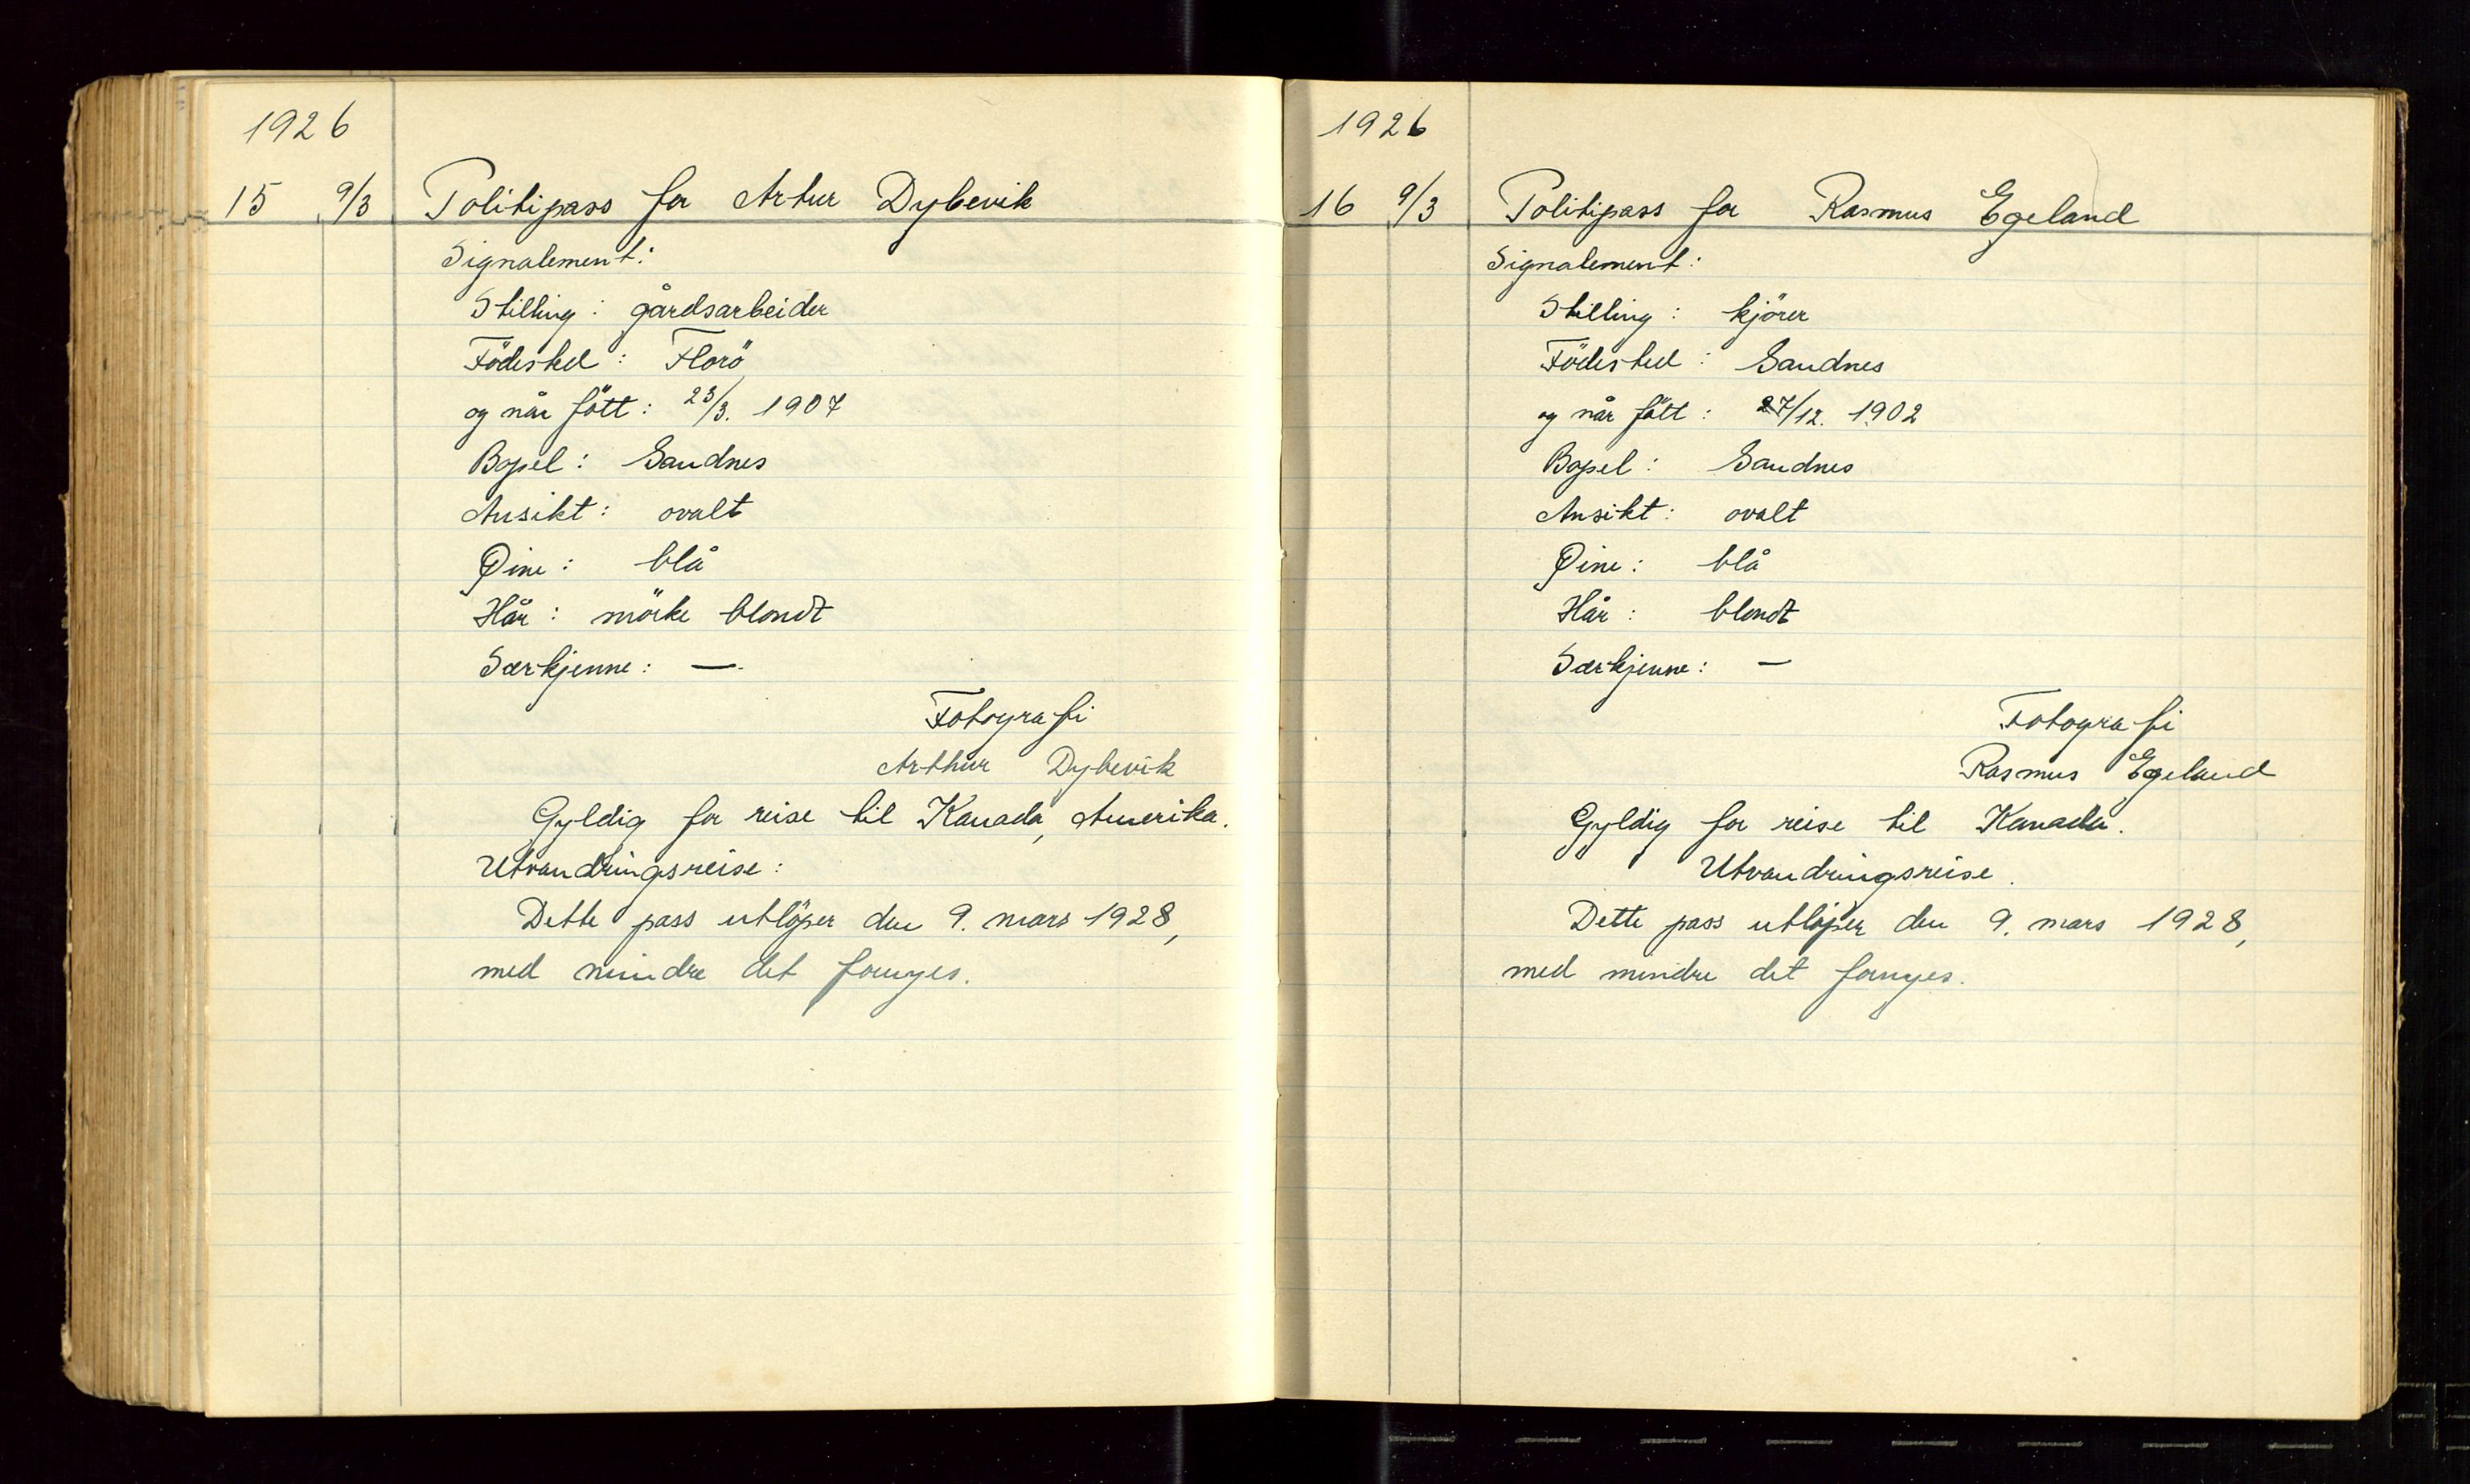 1926
15 9/3 Politipass for Artur Dybevik
Signalement:
Stilling: gårdsarbeider
Födested: Florö
og når fött: 23/3. 1907
Bopel: Sandnes
Ansikt: ovalt
Øine: blå
Hår: mörke blondt
Særkjenne: —
Fotografi
Arthur Dybevik
Gyldig for reise til Kanada, Amerika.
Utvandringsreise:
Dette pass utlöper den 9. mars 1928,
med mindre det fornyes.
1926
16 9/3 Politipass for Rasmus Egeland
Signalement:
Stilling: kjörer
Födested: Sandnes
og når fött: 27/12. 1902
Bopel: Sandnes
Ansikt: ovalt
Øine: blå
Hår: blondt
Særkjenne: —
Fotografi
Rasmus Egeland
Gyldig for reise til Kanada.
Utvandringsreise.
Dette pass utlöper den 9. mars 1928,
med mindre det fornyes.